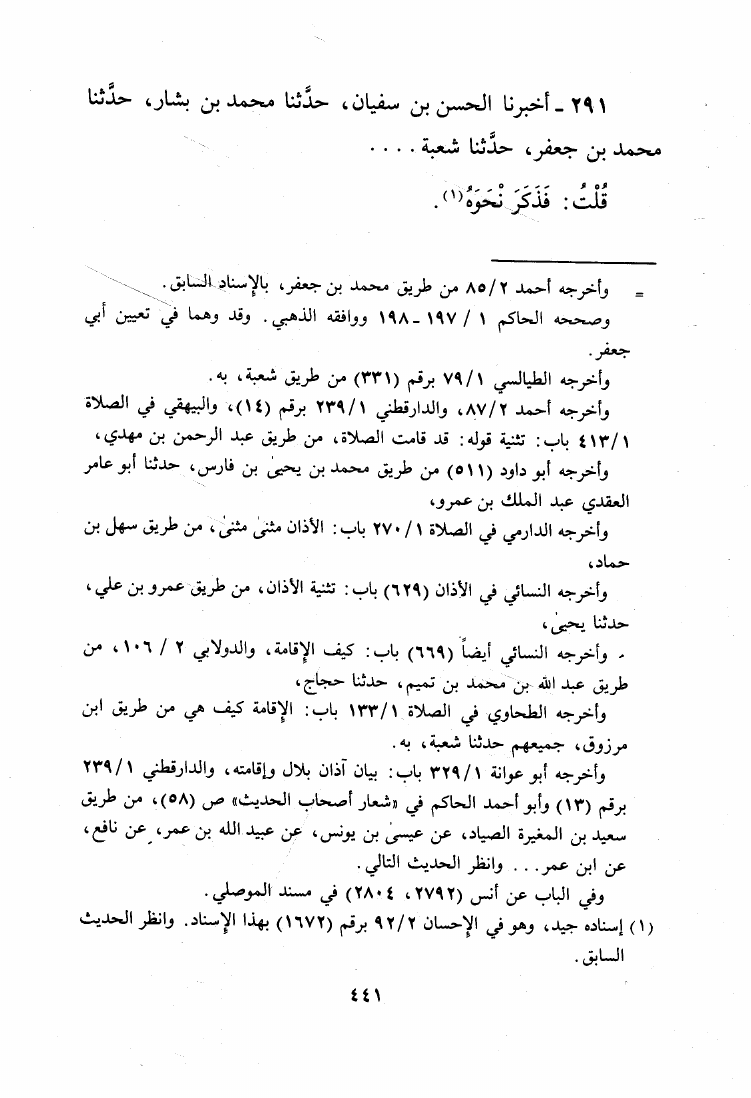 ٢٩١ - أخبرنا الحسن بن سفيان، حدَّثنا محمد بن بشار، حدَّثنا
محمد بن جعفر، حدَّثنا شعبة . . . .
قُلْتُ: فَذَكَرَ نَحْوَهُ(١).
= وأخرجه أحمد ٨٥/٢ من طريق محمد بن جعفر، بالإسناد السابق.
وصححه الحاكم ١ / ١٩٧ - ١٩٨ ووافقه الذهبي. وقد وهما في تعيين أبي
جعفر.
وأخرجه الطيالسي ٧٩/١ برقم (٣٣١) من طريق شعبة، به.
وأخرجه أحمد ٨٧/٢، والدارقطني ٢٣٩/١ برقم (١٤)، والبيهقي في الصلاة
٤١٣/١ باب: تثنية قوله: قد قامت الصلاة، من طريق عبد الرحمن بن مهدي،
وأخرجه أبو داود (٥١١) من طريق محمد بن يحيىٰ بن فارس، حدثنا أبو عامر
العقدي عبد الملك بن عمرو،
وأخرجه الدارمي في الصلاة ٢٧٠/١ باب: الأذان مثنىٰ مثنىٰ، من طريق سهل بن
حماد،
وأخرجه النسائي في الأذان (٦٢٩) باب: تثنية الأذان، من طريق عمرو بن علي،
حدثنا يحيىٰ،
وأخرجه النسائي أيضاً (٦٦٩) باب: كيف الإقامة، والدولابي ٢ / ١٠٦، من
طريق عبد الله بن محمد بن تميم، حدثنا حجاج،
وأخرجه الطحاوي في الصلاة ١٣٣/١ باب: الإقامة كيف هي من طريق ابن
مرزوق، جميعهم حدثنا شعبة، به.
وأخرجه أبو عوانة ٣٢٩/١ باب: بيان آذان بلال وإقامته، والدارقطني ٢٣٩/١
برقم (١٣) وأبو أحمد الحاكم في «شعار أصحاب الحديث» ص (٥٨)، من طريق
سعيد بن المغيرة الصياد، عن عيسىٰ بن يونس، عن عبيد الله بن عمر، عن نافع،
عن ابن عمر... وانظر الحديث التالي.
وفي الباب عن أنس (٢٧٩٢، ٢٨٠٤) في مسند الموصلي.
(١) إسناده جيد، وهو في الإحسان ٩٢/٢ برقم (١٦٧٢) بهذا الإسناد. وانظر الحديث
السابق.
٤٤١